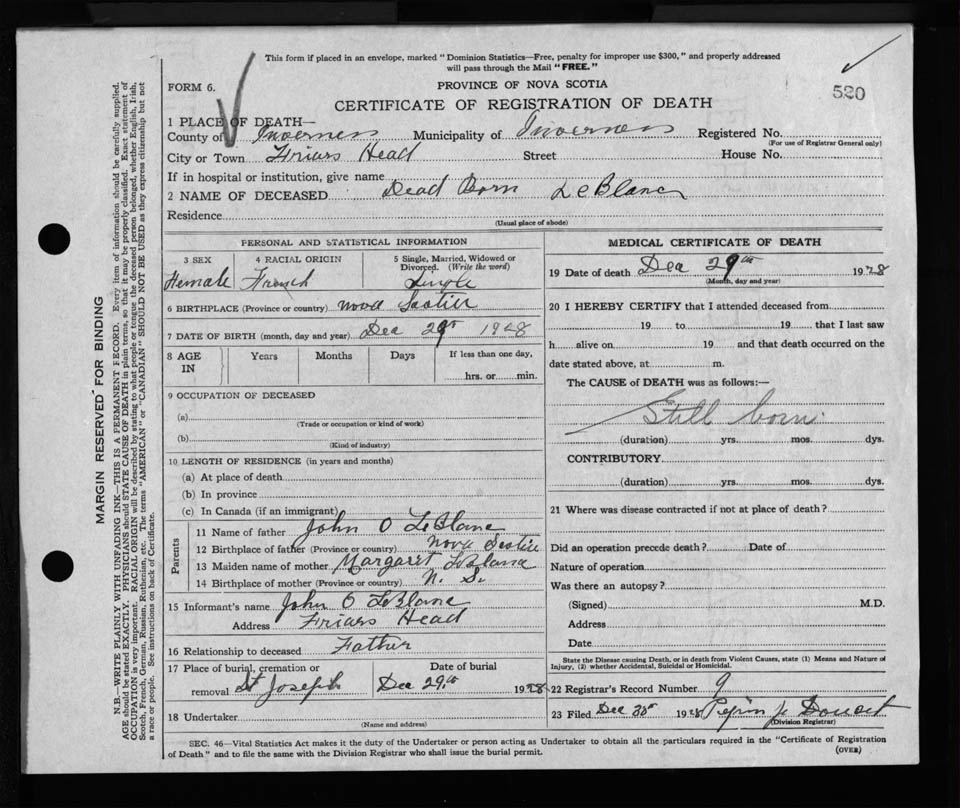 This form if placed in an envelope, marked "Dominion Statistics—Free, penalty for improper use $300," and properly addressed
will pass through the Mail "FREE."
FORM 6.
PROVINCE OF NOVA SCOTIA
520
CERTIFICATE OF REGISTRATION OF DEATH
1 PLACE OF DEATH—
County of Inverness Municipality of Inverness Registered No.
(For use of Registrar General only)
City or Town Friars Head Street House No.
If in hospital or institution, give name
2 NAME OF DECEASED Dead Born LeBlanc
Residence
(Usual place of abode)
PERSONAL AND STATISTICAL INFORMATION
3 SEX 4 RACIAL ORIGIN 5 Single, Married, Widowed or
Divorced. (Write the word)
Female French Single
6 BIRTHPLACE (Province or country) Nova Scotia
7 DATE OF BIRTH (month, day and year) Dec 29th 1928
8 AGE IN Years Months Days If less than one day,
hrs. or min.
9 OCCUPATION OF DECEASED
(a)
(Trade or occupation or kind of work)
(b)
(Kind of industry)
10 LENGTH OF RESIDENCE (in years and months)
(a) At place of death
(b) In province
(c) In Canada (if an immigrant)
Parents
11 Name of father John O LeBlanc
12 Birthplace of father (Province or country) Nova Scotia
13 Maiden name of mother Margaret LeBlanc
14 Birthplace of mother (Province or country) N. S.
15 Informant's name John O LeBlanc
Address Friars Head
16 Relationship to deceased Father
17 Place of burial, cremation or Date of burial
removal St Joseph Dec 29th 1928
18 Undertaker
(Name and address)
MEDICAL CERTIFICATE OF DEATH
19 Date of death Dec 29th 1928
(Month, day and year)
20 I HEREBY CERTIFY that I attended deceased from
19 to 19 that I last saw
h alive on 19 and that death occurred on the
date stated above, at m.
The CAUSE of DEATH was as follows:—
Still born
(duration) yrs. mos. dys.
CONTRIBUTORY
(duration) yrs. mos. dys.
21 Where was disease contracted if not at place of death?
Did an operation precede death? Date of
Nature of operation
Was there an autopsy?
(Signed) M.D.
Address
Date
State the Disease causing Death, or in death from Violent Causes, state (1) Means and Nature of
Injury, (2) whether Accidental, Suicidal or Homicidal.
22 Registrar's Record Number 9
23 Filed Dec 30th 1928 Pepin J. Doucet
(Division Registrar)
SEC. 46—Vital Statistics Act makes it the duty of the Undertaker or person acting as Undertaker to obtain all the particulars required in the "Certificate of Registration
of Death" and to file the same with the Division Registrar who shall issue the burial permit.
(OVER)
MARGIN RESERVED FOR BINDING
N.B.—WRITE PLAINLY WITH UNFADING INK—THIS IS A PERMANENT RECORD. Every item of information should be carefully supplied.
AGE should be stated EXACTLY. PHYSICIANS should STATE CAUSE OF DEATH in plain terms, so that it may be properly classified. Exact statement of
OCCUPATION is very important. RACIAL ORIGIN will be described by stating to what people or tongue the deceased person belonged, whether English, Irish,
Scotch, French, German, Russian, Ruthenian, etc. The terms "AMERICAN" or "CANADIAN" SHOULD NOT BE USED as they express citizenship but not
a race or people. See instructions on back of Certificate.